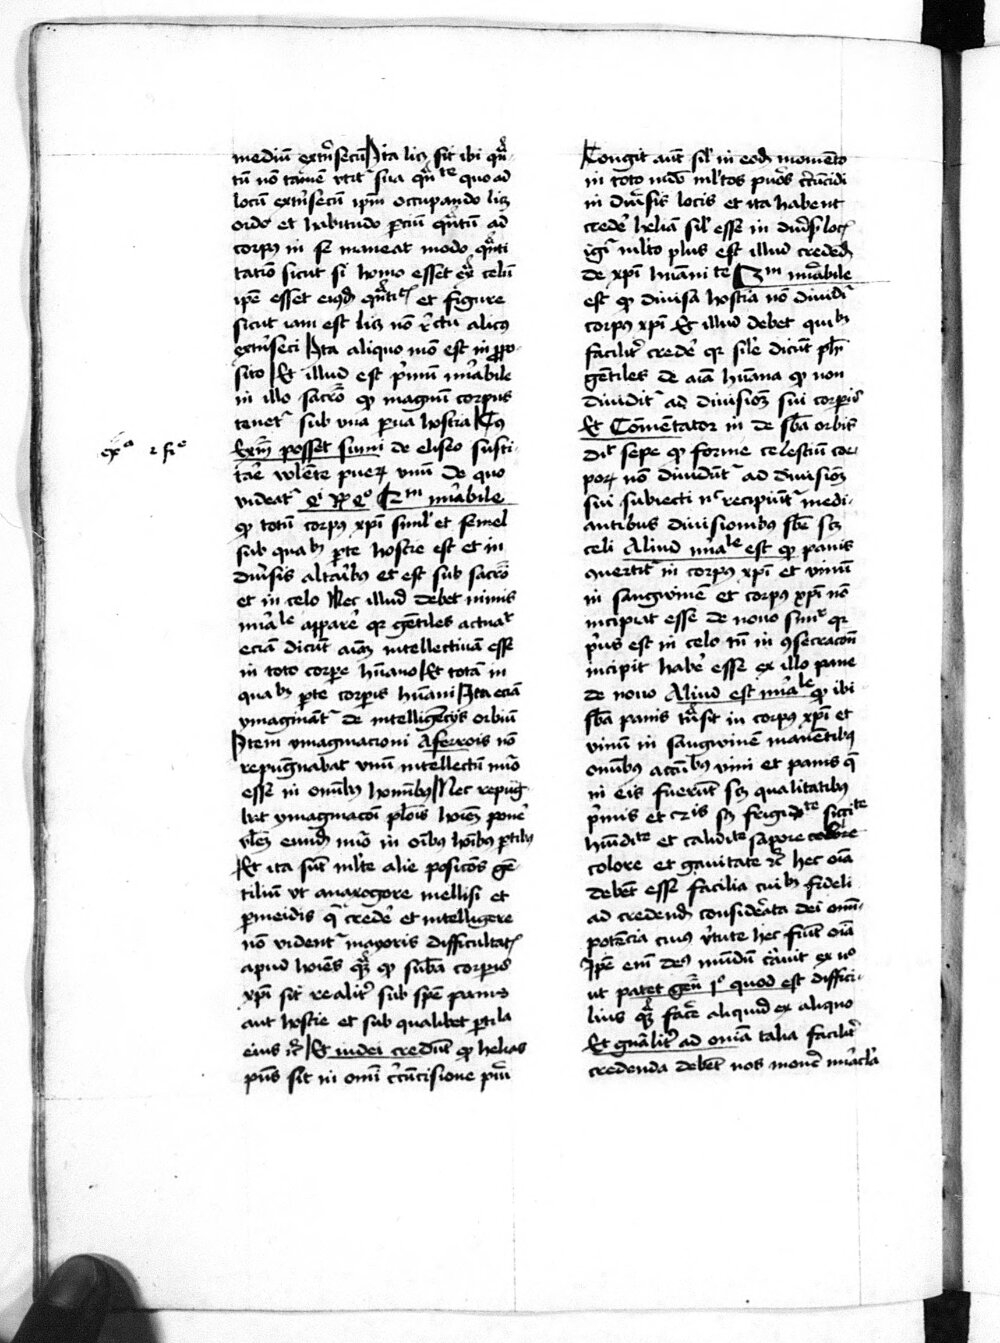 mediū extrīsecū Ita licꝫ sit ibi qn̄-
tū nō tamē vtit sua qn̄te quo ad
locū extrīsecū ipm̄ occupando licꝫ
ordo et habitudo ꝑciū qn̄titū ad
corpꝰ in se maneat modo qn̄ti
tatiō sicut si homo esset ex̄ celū
ipē esset eiusdꝫ qn̄titꝭ et figure
sicut iam est licꝫ nō r̄ctu alicꝰ
extrīseci Ita aliquo mō est in ꝓpo
sito Et illud est pͥmū mirabile
in illo sacrō ꝙ magnū corpus
tenetʳ sub una ꝑua hostia Cꝰ
exm̄ posset sumi de eliseo susti-
tāe volēte pueꝝ vnū de quo
videatʳ
exᵒ 2 fiᵒ
2m mirabile
ꝙ totū corpꝰ xpī simul et semel
sub quabꝫ ꝑte hostie est et in
diūsis altaribꝰ et est sub sacrō
et in celo Nec illud debet nimis
mirale appare qꝛ gētiles
eciā dicūt aīam intellectiuam esse
in toto corpore hūano Et totā in
quabꝫ ꝑte corpis hūani Ita eciā
ymaginātʳ de intelligēcijs orbiū
Item ymaginacioni Aferrois nō
repugnabat vnū intellectū nūo
esse in omībꝰ hominibꝰ Nec repug-
bat ymaginacōi platōis hoīem pone
vlēm eundē nūo in oībꝰ hoībꝰ ꝑtibꝰ
Et ita sūt ml̄te alie posicōes gē-
tiliū vt anaxogore mellisi et
ꝑmeidis q̄ crede et intelligere
nō vidētʳ mayoris difficultatꝭ
apud hoīes qꝫ ꝙ subā corporis
xpī sit realitʳ sub spē panis
aut hostie et sub qualibet ꝑticla
eius rc̄ Et iudei crediūt ꝙ helias
pn̄s sit in omī circūcisione pūi
Congit aūt sil' in eodꝫ momēto
in toto mūdo ml'tos pueros circūcidi
in diuersis locis et ita habent
crede heliā sil' esse in diuersꝭ locꝭ
igr̄ ml'to plus est illud credendū
de xpī hūanite 3m mirabile
est ꝙ diuisa hostia nō diuidiʳ
corpꝰ xpī Et illud debet quibꝫ
facilitʳ crede qꝛ sil'e dicūt ph̄i
gētiles de aīa hūana ꝙ non
diuiditʳ ad diuisionē sui corporis
Et Comētator in de sba orbis
dīt sepe ꝙ forme celestiū cor-
poꝝ nō diuidūtʳ ad diuisionē
sui subiecti nec recipiūtʳ medi-
antibus diuisionibꝰ sbē scꝫ
celi Aliud mirale est ꝙ panis
quertitʳ in corpꝰ xpī et vinū
in sangwinē et corpꝰ xpī nō
incipiat esse de nouo qꝛ
prius est in celo tn̄ in ꝯsecracōne
incipit habe esse ex illo pane
de nouo Aliud est mirale ꝙ ibi
sba panis trāsit in corpꝰ xpī et
vinū in sangwinem manētibꝰ
omībꝰ accn̄tibꝰ vini et panis q̄
in eis fuerūt scꝫ qualitatibꝰ
pͥmis et 2ris scꝫ frigidite siccite
hūidite et calidite sapore
colore et grauitate rc̄ hec oīa
debēt esse facilia cuibꝫ fideli
ad credendū considerata dei omī-
potēcia cuiꝰ vͥtute hec fiūt oīa
Ipē enī deꝰ mūdū creauit ex no
ut patet gen̄ 1ᵒ quod est diffici-
lius qꝫ face aliquid ex aliquo
Et gn̄alitʳ ad omīa talia facilitʳ
credenda debēt nos mouē miracla